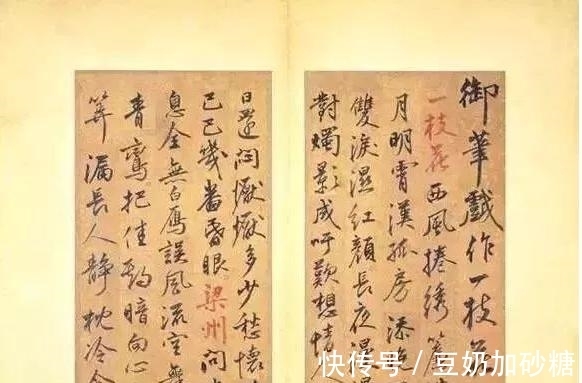 御筆戲作一枝
一枝花西風捲綉
月明霄漢孤房添
雙淚濕紅顏長夜
對燭影成吁歎想情人
日還悶懨懨多少愁懷
已已幾番昏眼梁州問
息全無白雁誤風流空
青鸞把佳約暗向心
筭漏長人靜枕冷衾
快传号 / 豆奶加砂糖